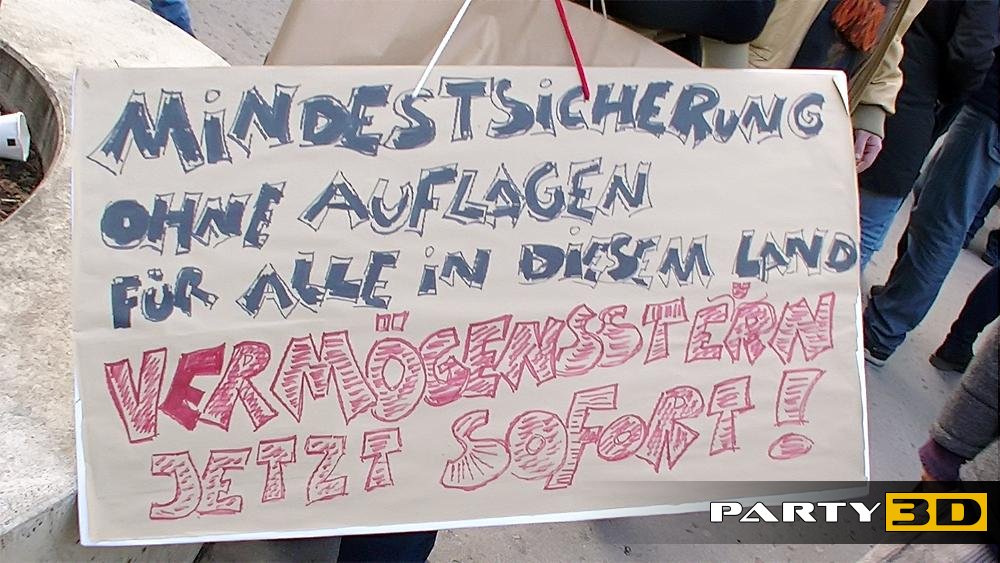 MiNDESTSiCHERuNG
OHNE AUFLAGEN
FÜR ALLE iN DiESEM LAND
VERMÖGENSSTERN
JETZT SOFORT!
PARTY 3D